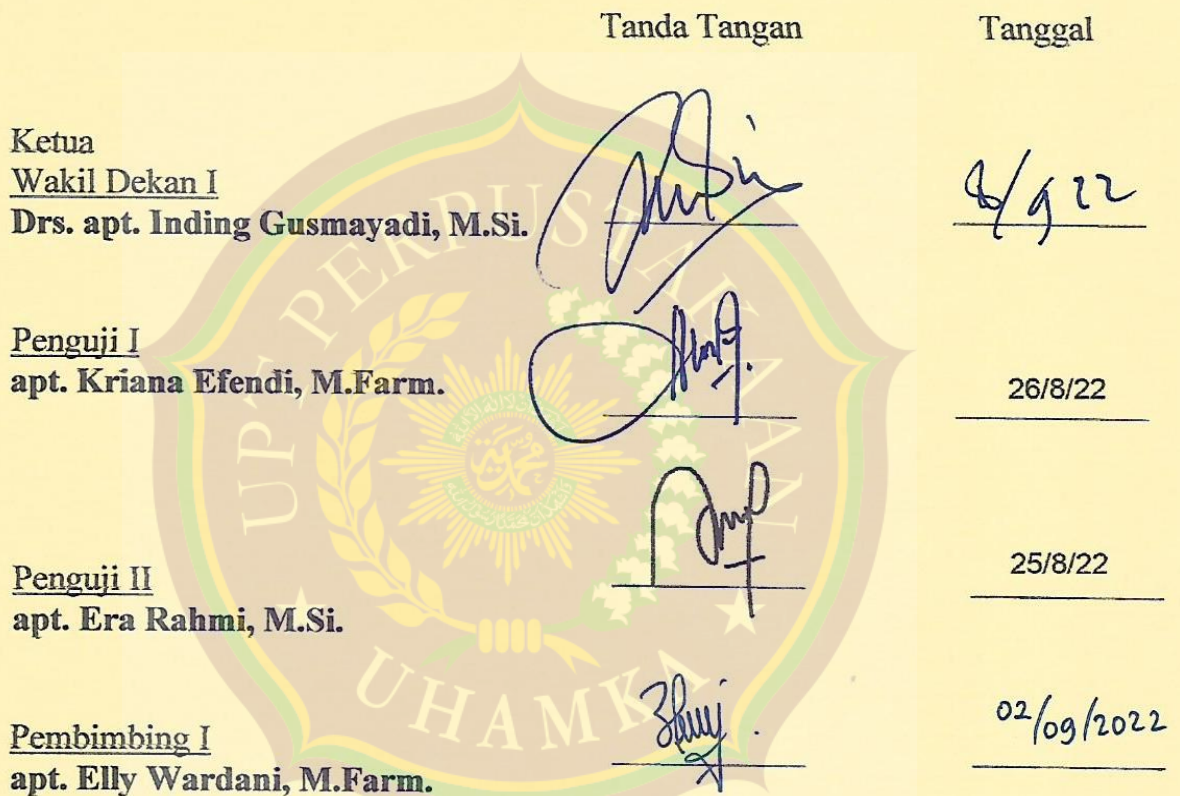 Tanda Tangan Tanggal
Ketua
Wakil Dekan I
Drs. apt. Inding Gusmayadi, M.Si.
/9 22
Penguji I
apt. Kriana Efendi, M.Farm.
26/8/22
Penguji II
25/8/22
apt. Era Rahmi, M.Si.
Pembimbing I
02/09/2022
apt. Elly Wardani, M.Farm.
UPT PERPUSTAKAAN
UHAMKA